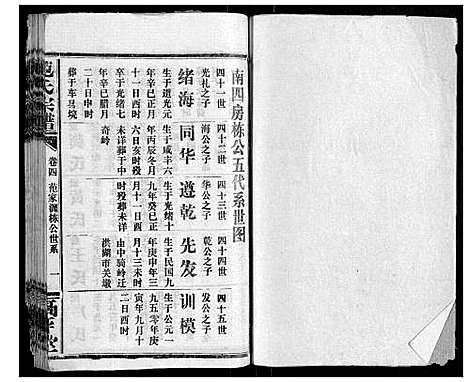 南四房栋公五代系世图
四十一世
光礼之子
绪海
生于道光元
年辛巳十一
十一日酉时
卒于光绪七
年辛巳腊月
二十日申时
葬于车马境
四十二世
海公之子
同华
生于咸丰六
年丙辰冬月
六日亥时殁
未详葬于中
奇岭
四十三世
华公之子
遵乾
生于光绪十
九年癸巳正
月十一日寅
时殁葬未详
四十四世
乾公之子
先发
生于民国九
年庚申年三
月十三未时
由中骑岭迁
洪湖市关墩
四十五世
发公之子
训模
生于公元一
九五零年庚
寅年九月十
二日酉时
卷四
范家渊栋公世系
一